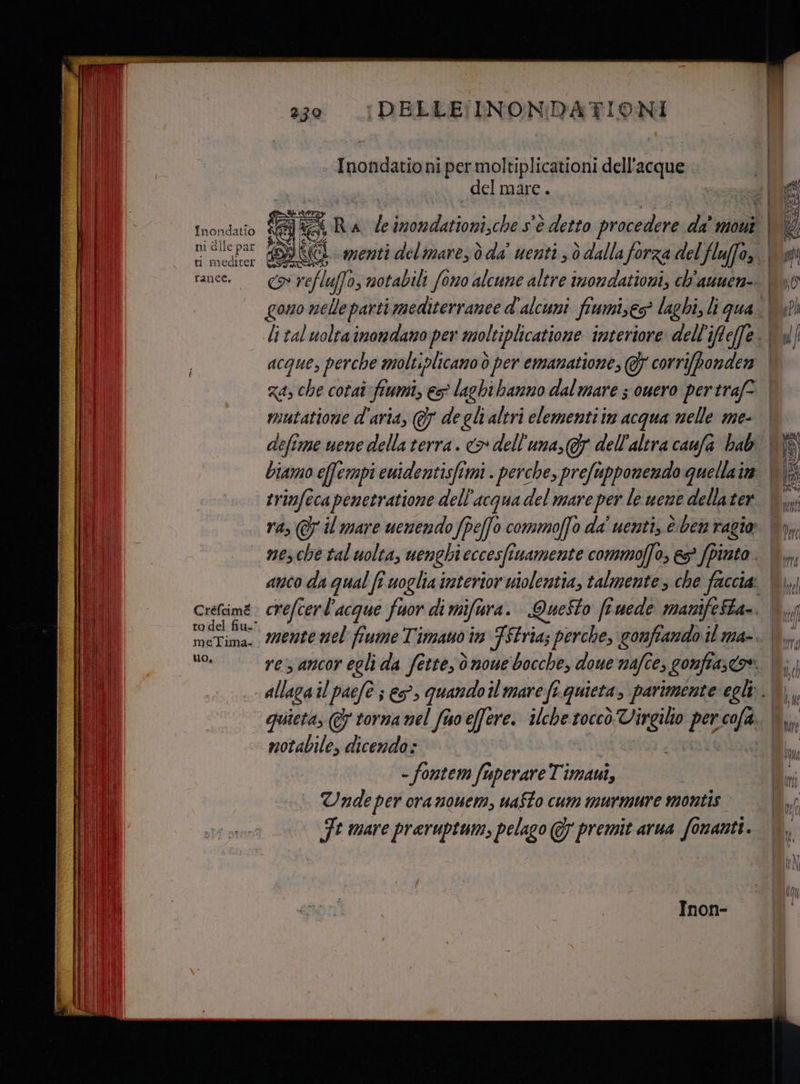 230 DELLE INONDATIONI
Inondationi per moltiplicationi dell'acque
del mare.
Inondatio
ni dlle par
ti mediter
rance.
RA le inondationi, che s'è detto procedere da' moui
menti del mare, ò da' uenti, ò dalla forza del flusso,
& reflusso, notabili sono alcune altre inondationi, ch'auuen-
gono nelle parti mediterranee d'alcuni fiumi, & laghi, li qua
li tal uolta inondano per moltiplicatione interiore dell'istesse
acque, perche moltiplicano ò per emanatione, & corrisponden
za, che cotai fiumi, & laghi hanno dal mare; ouero per tras-
mutatione d'aria, & de gli altri elementi in acqua nelle me-
desime uene della terra. & dell'una, & dell'altra causa hab
biamo essempi euidentissimi. perche, presupponendo quella in
trinseca penetratione dell'acqua del mare per le uene della ter
ra, & il mare uenendo spesso commosso da' uenti, è ben ragio
ne, che tal uolta, uenghi eccessiuamente commosso, & spinto
anco da qual si uoglia interior uiolentia, talmente, che faccia
Crescimē
to del fiu-
me Tima-
uo.
crescer l'acque fuor di misura. Questo si uede manifesta-
mente nel fiume Timauo in Istria; perche, gonfiando il ma-
re, ancor egli da sette, ò noue bocche, doue nasce, gonfia, &
allaga il paese; &, quando il mare si quieta, parimente egli
quieta, & torna nel suo essere. ilche toccò Virgilio per cosa
notabile, dicendo:
- fontem superare Timaui,
Unde per ora nouem, uasto cum murmure montis
It mare præruptum, pelago & premit arua sonanti.
Inon-